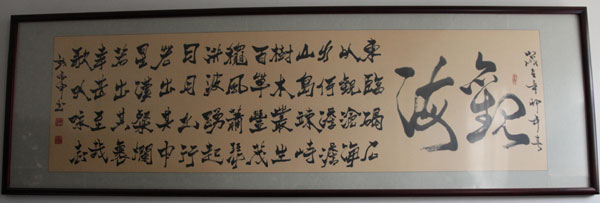 觀海
東臨碣石
以觀滄海
水何澹澹
山島竦峙
樹木叢生
百草豐茂
龝風蕭瑟
洪波踴起
日月之行
若出其中
星漢燦爛
若出其裏
幸甚至哉
歌以咏志